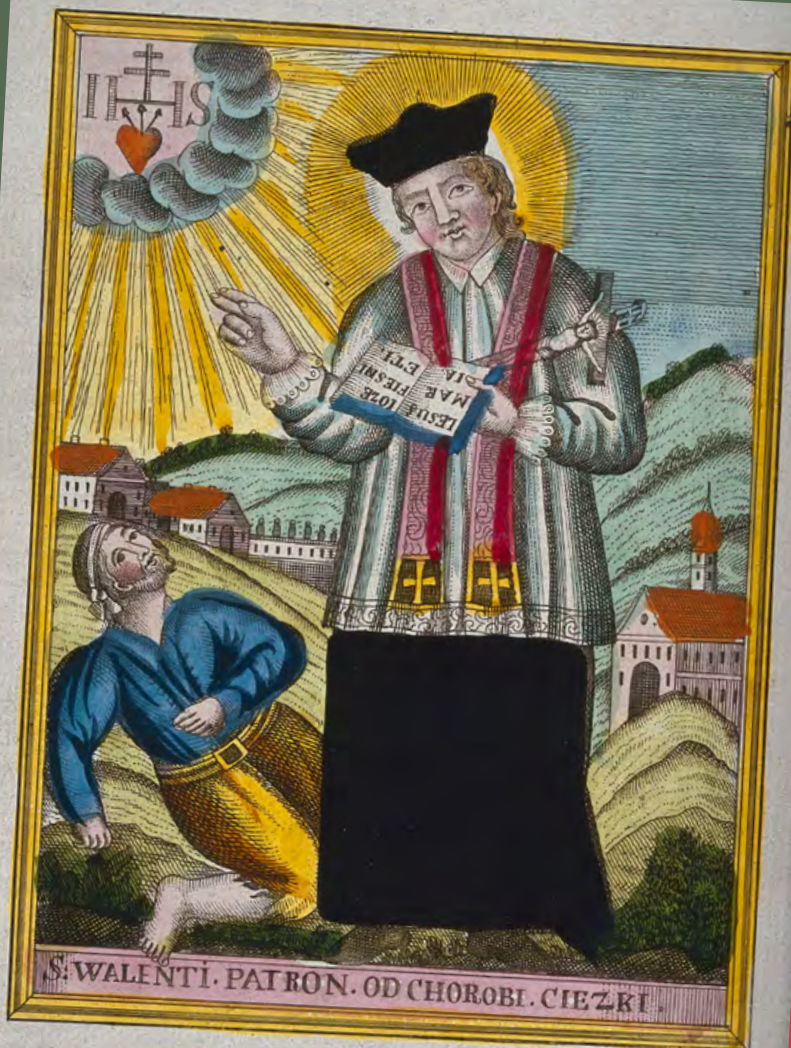 IHS
IESUS
MAR
IOZE
FIESNI
ETI.
S. WALENTI. PATRON. OD CHOROBI. CIEZKI.